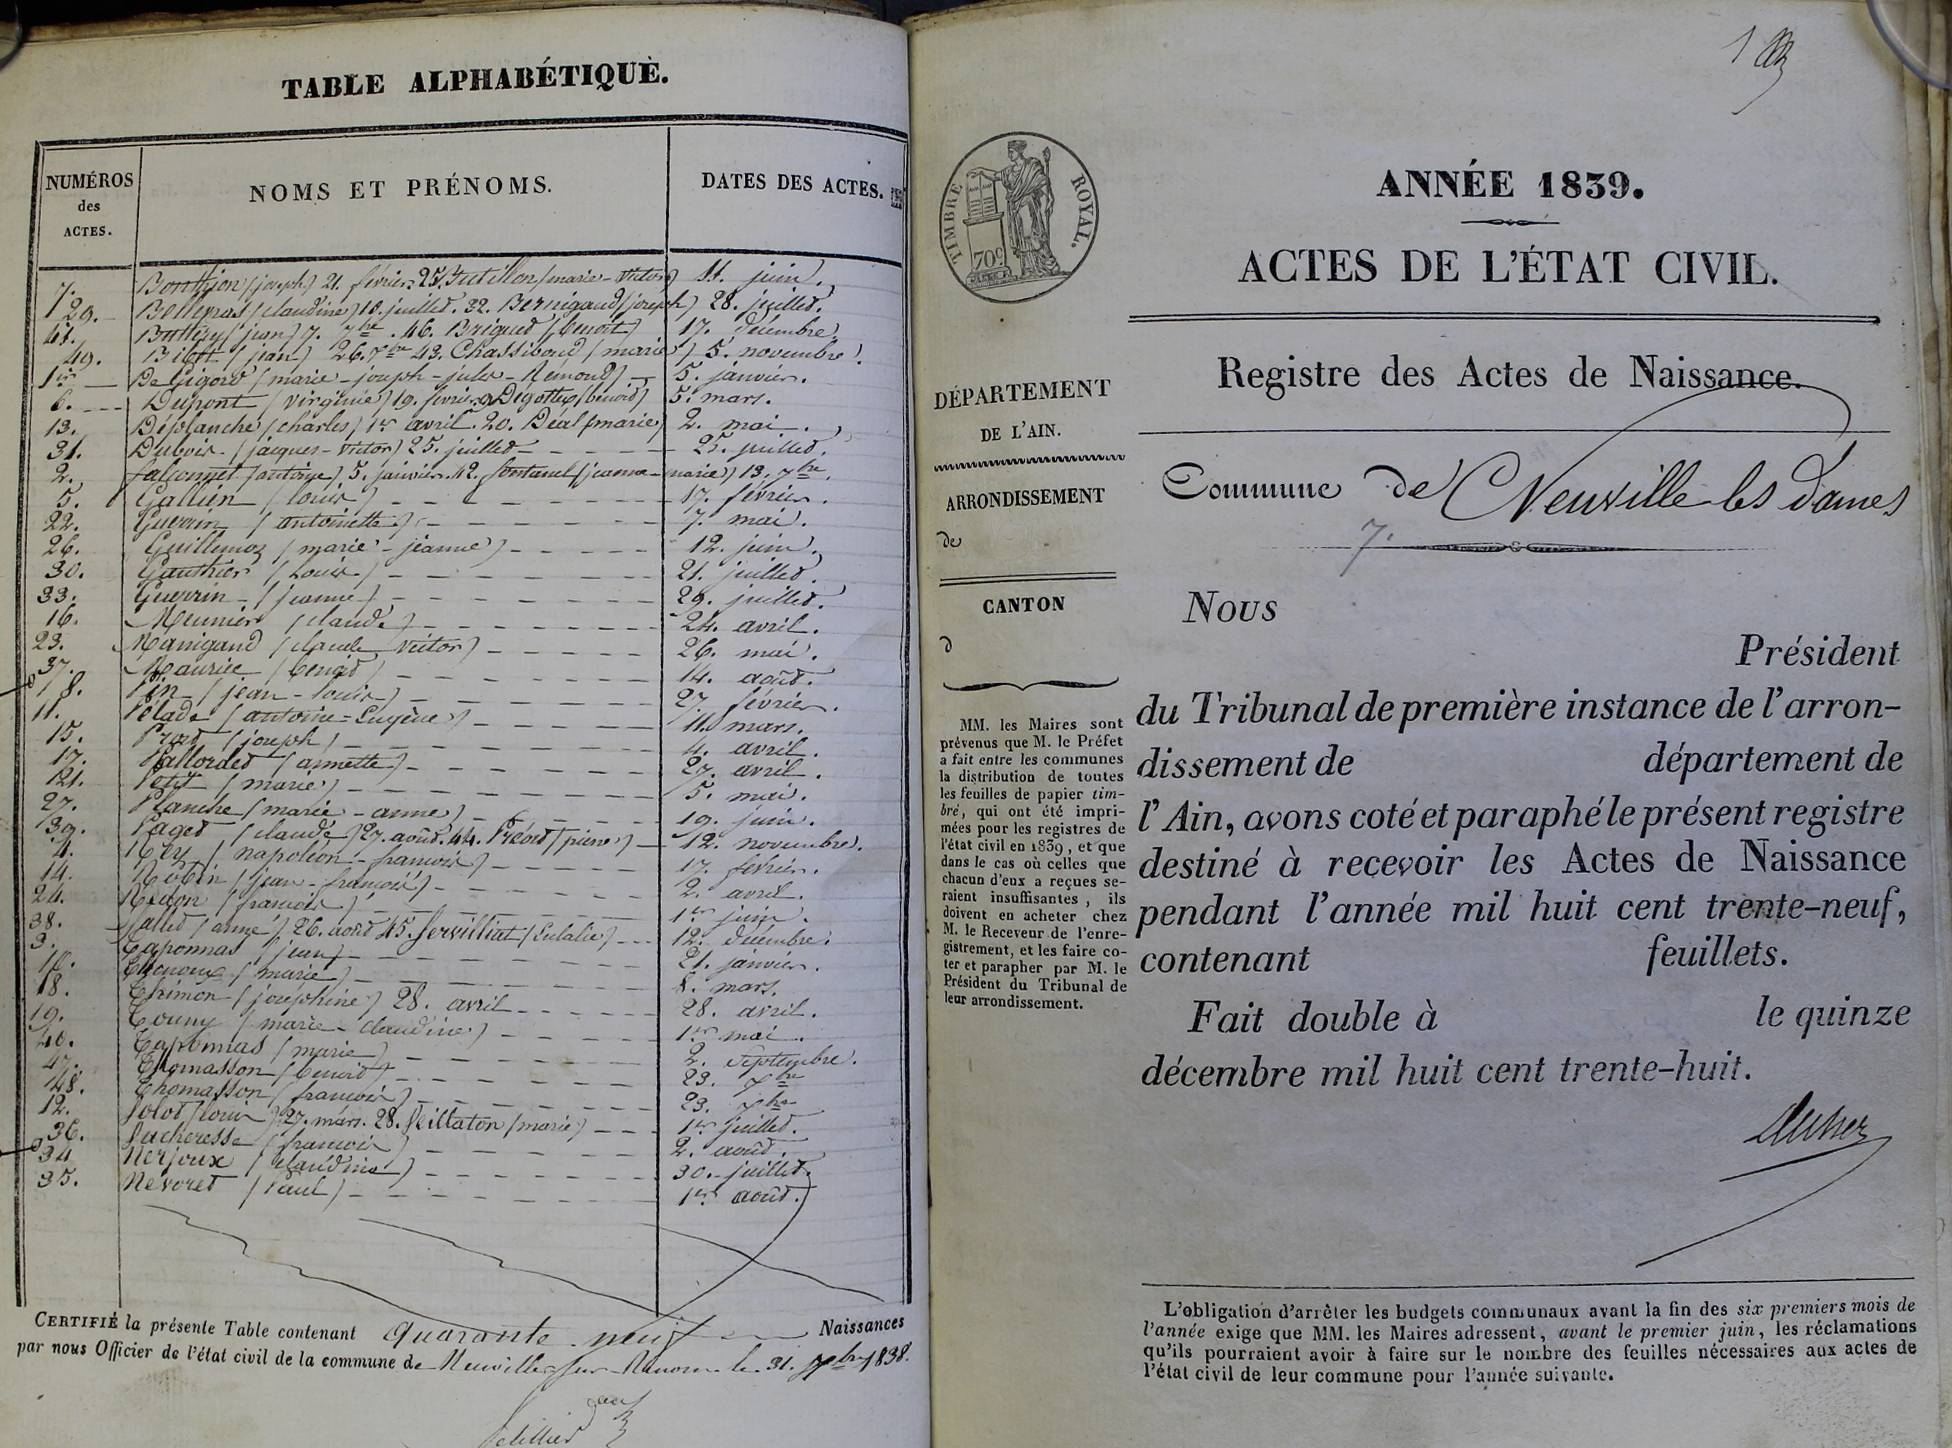 TABLE ALPHABÉTIQUE.
NUMÉROS
des
ACTES.
NOMS ET PRÉNOMS.
DATES DES ACTES.
7. (joseph) 21. février 25. (marie - victor) 11. juin.
29. (claudine) 18. juillet. 32. Bernigaud (joseph) 28. juillet.
41. (jean) 7. 7bre. 46. Brigaud (benoit) 17. décembre.
49. (jean) 26. 43. (marie) 5. novembre.
1er De Gigord (marie - joseph - jules - Remond) 5. janvier.
6. Dupont (virginie) 19. février 9 (benoid) 5. mars.
13. Déplanche (charles) 1er avril. 20. Déal (marie) 2. mai.
31. Dubois (jacques - victor) 25. juillet 25. juillet.
2. (antoine) 5. janvier. 42. (jeanne - marie) 13. 7bre.
5. Gallien (louis) 17. février.
22. Guerrin (antoinette) 7. mai.
26. Guillemoz (marie - jeanne) 12. juin.
30. Gauthier (Louis) 21. juillet.
33. Guerrin (jeanne) 29. juillet.
16. Meunier (claude) 24. avril.
23. Manigand (claude victor) 26. mai.
37. Maurice (benoid) 14. août.
8. Pin (jean - louis) 27. février.
11. Pélade (antoine = Eugène) 11. mars.
15. (joseph) 4. avril.
17. (annette) 27. avril.
21. Petit (marie) 5. mai.
27. Planche (marie - anne) 19. juin.
39. Paged (claude) 27. août. 44. (pierre) 12. novembre.
4. Rey (napoléon - francois) 17. février.
14. Robin (jean - francois) 2. avril.
24. (francois) 1er juin.
38. (anne) 26. août 45. Servilliat (Eulalie) 12. décembre.
3. Taponnas (jean) 21. janvier.
10. (marie) 8. mars.
18. (joséphine) 28. avril 28. avril.
19. (marie - Claudine) 1er mai.
40. Taponnas (marie) 2. Septembre.
47. Thomasson (benoid) 23.
48. Thomasson (francois) 23.
12. (louis) 27. mars. 28. (marie) 1er juillet.
36. Vacheresse (francois) 2. août.
34 Verjoux (claudine) 30. juillet.
35. Névoret (Paul) 1er août.
CERTIFIÉ la présente Table contenant quarante neuf Naissances
par nous Officier de l'état civil de la commune de Neuville sur Renom le 31. 1838.
1
TIMBRE ROYAL.
70c
ANNÉE 1839.
ACTES DE L'ÉTAT CIVIL.
Registre des Actes de Naissance.
DÉPARTEMENT
DE L'AIN.
ARRONDISSEMENT
de
CANTON
d
Commune de Neuville les Dames
7.
MM. les Maires sont
prévenus que M. le Préfet
a fait entre les communes
la distribution de toutes
les feuilles de papier tim-
bré, qui ont été impri-
mées pour les registres de
l'état civil en 1839, et que
dans le cas où celles que
chacun d'eux a reçues se-
raient insuffisantes, ils
doivent en acheter chez
M. le Receveur de l'enre-
gistrement, et les faire co-
ter et parapher par M. le
Président du Tribunal de
leur arrondissement.
Nous
Président
du Tribunal de première instance de l'arron-
dissement de département de
l'Ain, avons coté et paraphé le présent registre
destiné à recevoir les Actes de Naissance
pendant l'année mil huit cent trente-neuf,
contenant feuillets.
Fait double à le quinze
décembre mil huit cent trente-huit.
L'obligation d'arrêter les budgets communaux avant la fin des six premiers mois de
l'année exige que MM. les Maires adressent, avant le premier juin, les réclamations
qu'ils pourraient avoir à faire sur le nombre des feuilles nécessaires aux actes de
l'état civil de leur commune pour l'année suivante.